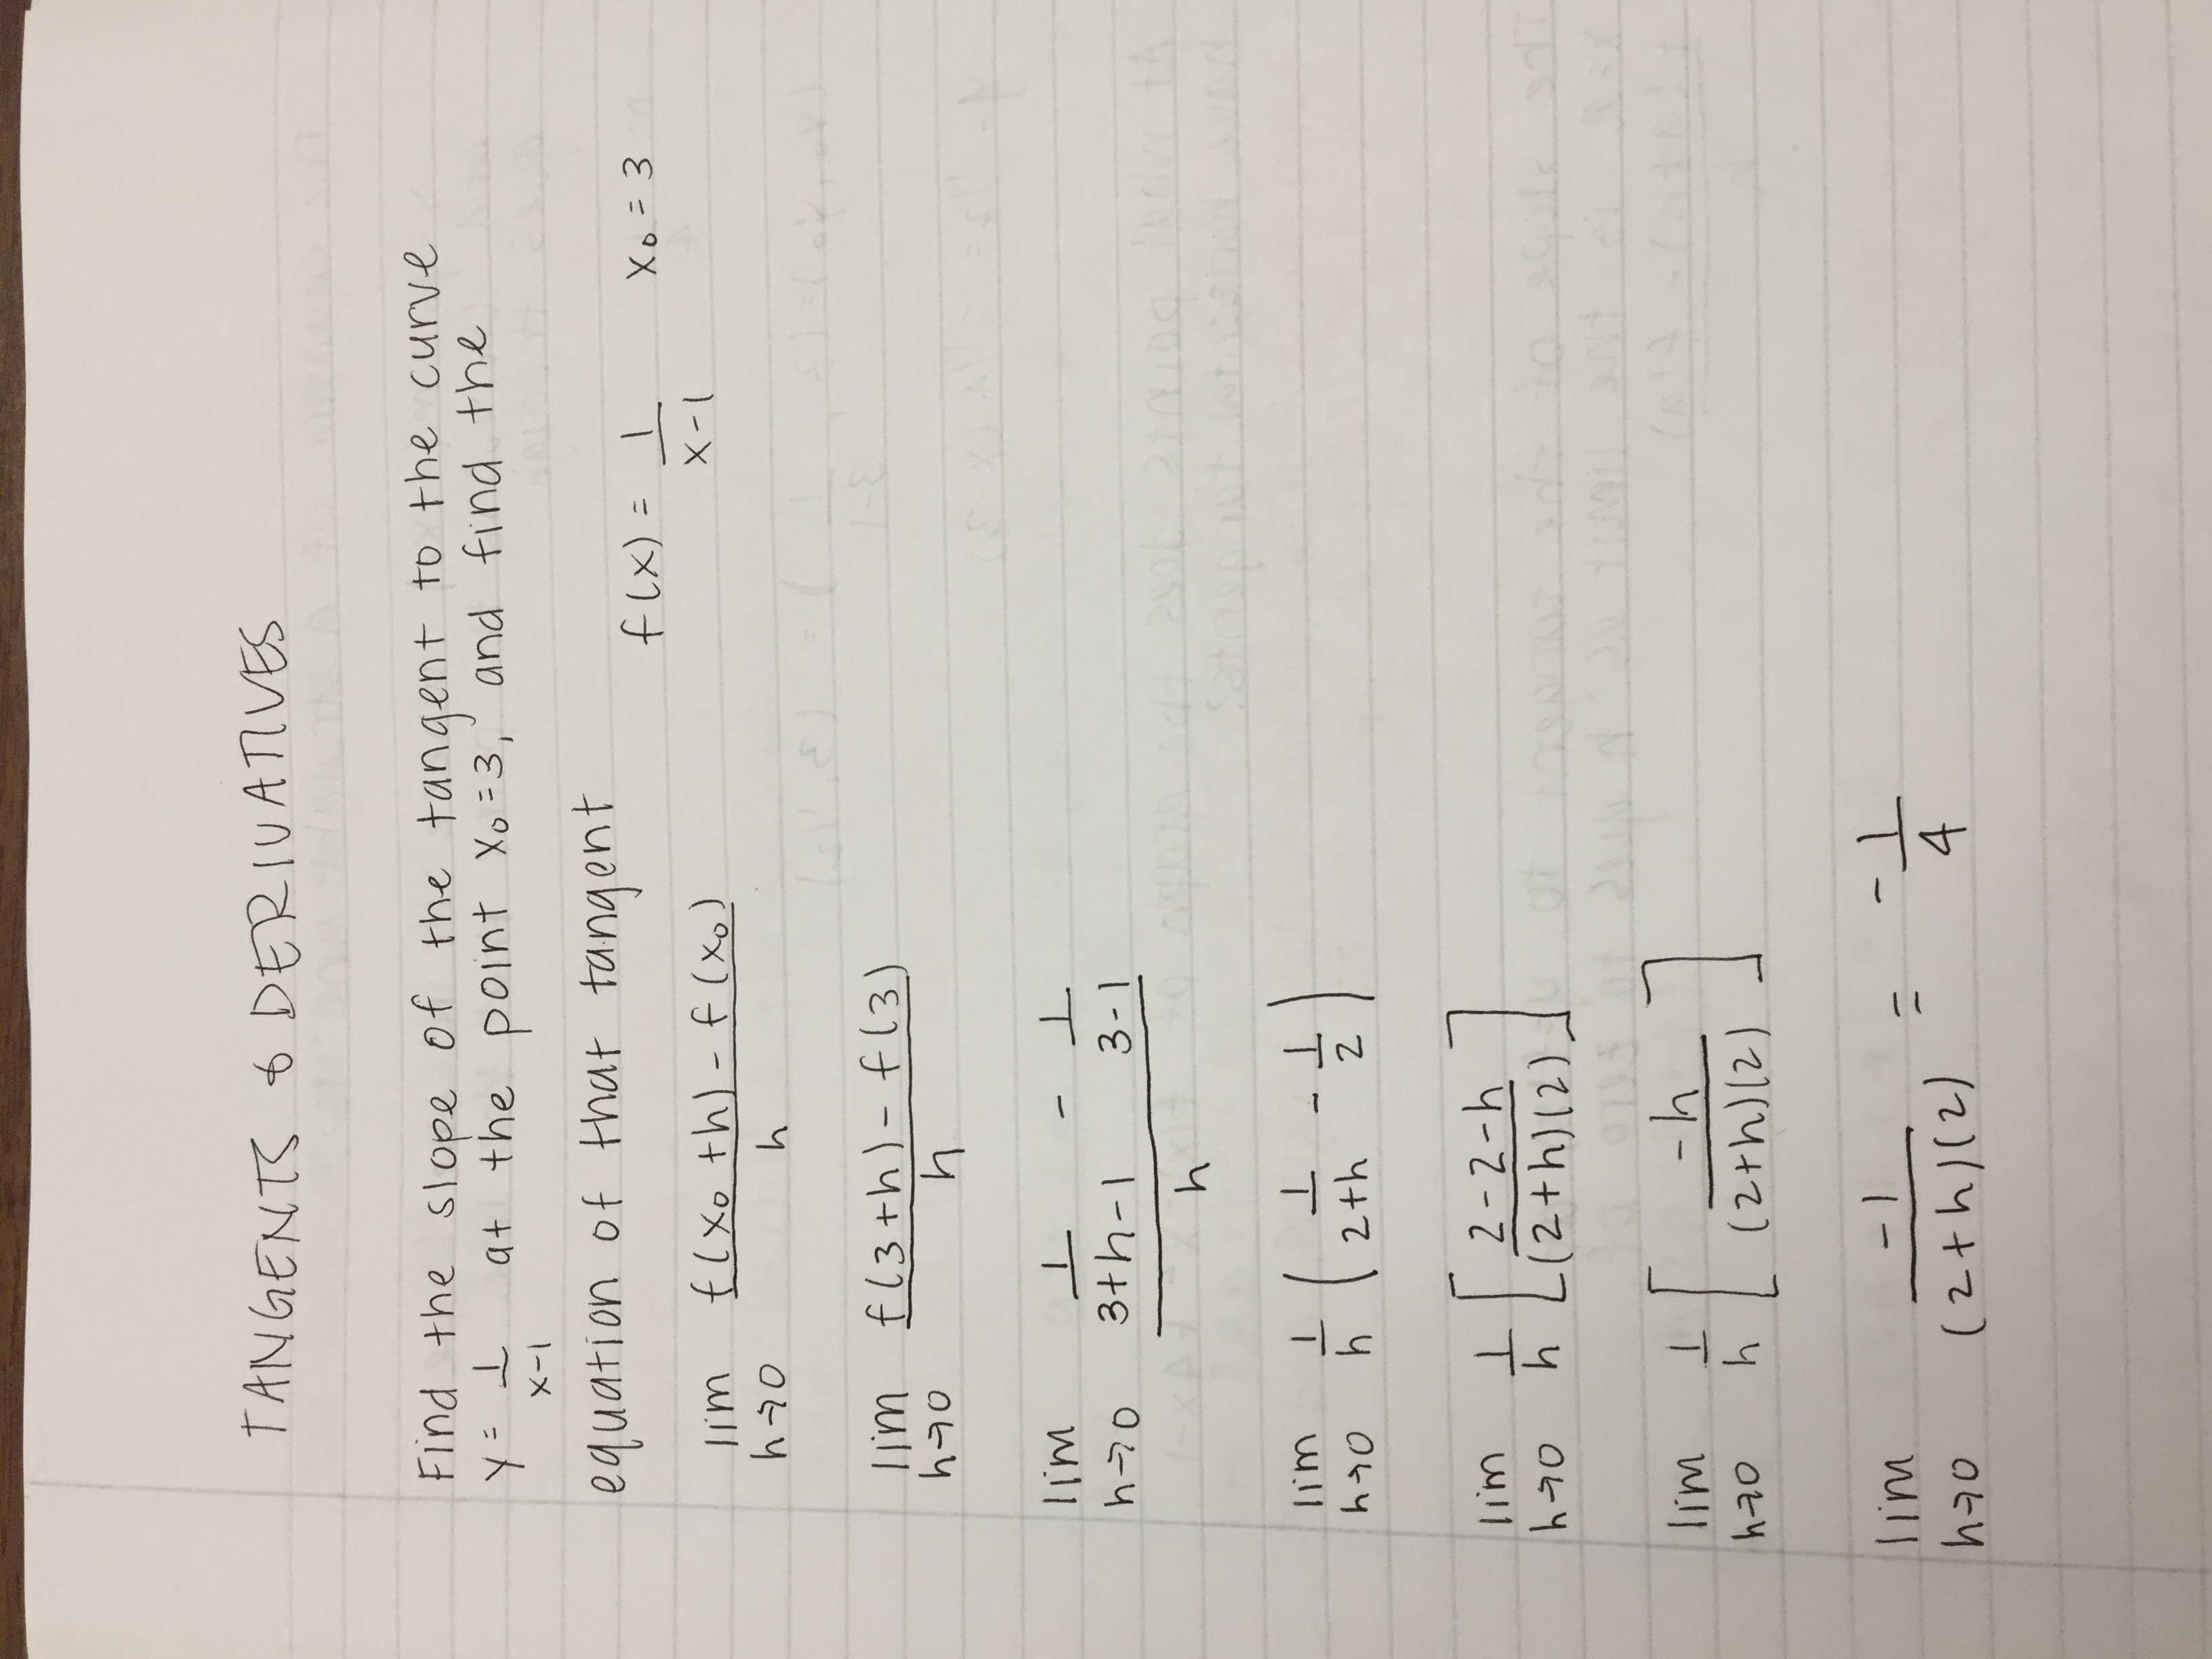 TANGENTS & DERIVATIVES
Find the slope of the tangent to the curve
y = 1/(x-1) at the point x₀=3, and find the
equation of that tangent
f(x) = 1/(x-1) x₀ = 3
lim h→0 (f(x₀+h) - f(x₀))/h
lim h→0 (f(3+h) - f(3))/h
lim h→0 (1/(3+h-1) - 1/(3-1))/h
lim h→0 1/h (1/(2+h) - 1/2)
lim h→0 1/h [(2-2-h)/((2+h)(2))]
lim h→0 1/h [-h/((2+h)(2))]
lim h→0 -1/((2+h)(2)) = -1/4